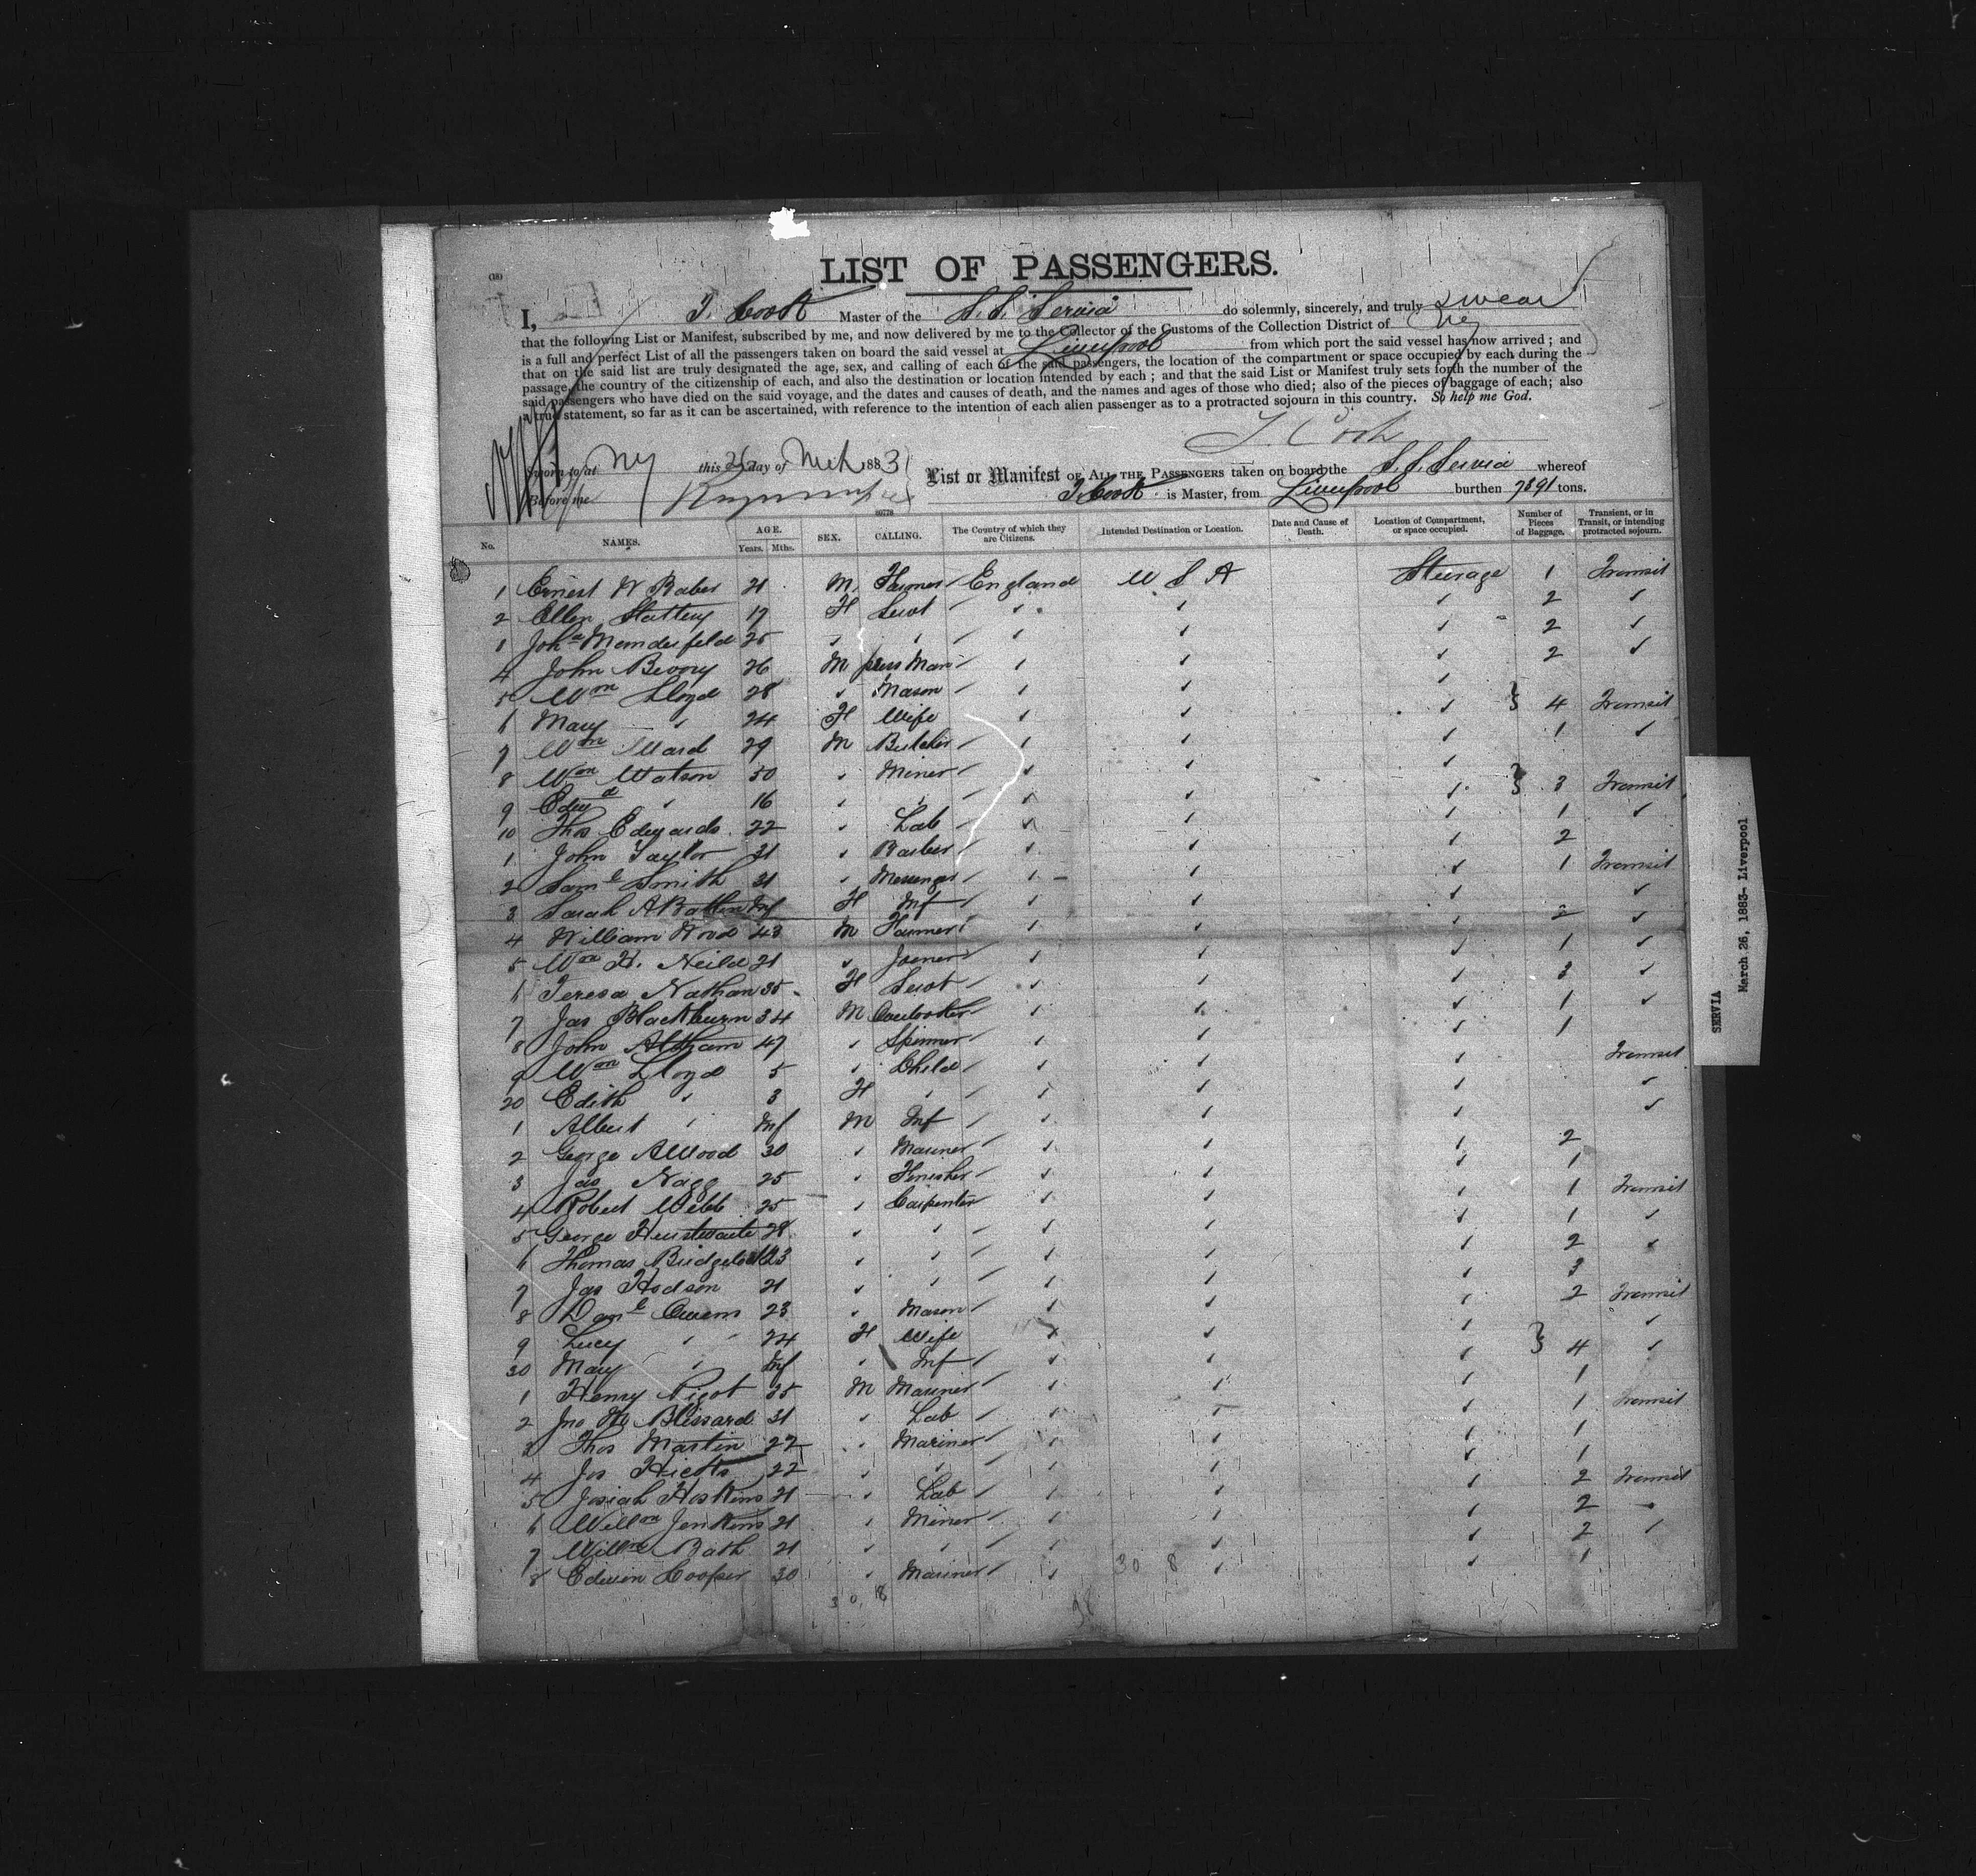 (18)
LIST OF PASSENGERS.
I, T. Cook Master of the S.S. Servia do solemnly, sincerely, and truly swear
that the following List or Manifest, subscribed by me, and now delivered by me to the Collector of the Customs of the Collection District of NY
is a full and perfect List of all the passengers taken on board the said vessel at Liverpool from which port the said vessel has now arrived ; and
that on the said list are truly designated the age, sex, and calling of each of the said passengers, the location of the compartment or space occupied by each during the
passage, the country of the citizenship of each, and also the destination or location intended by each ; and that the said List or Manifest truly sets forth the number of the
said passengers who have died on the said voyage, and the dates and causes of death, and the names and ages of those who died; also of the pieces of baggage of each; also
a true statement, so far as it can be ascertained, with reference to the intention of each alien passenger as to a protracted sojourn in this country. So help me God.
T. Cook
Sworn to at NY this 26 day of Mch 1883
Before me
List or Manifest OF ALL THE PASSENGERS taken on board the S.S. Servia whereof
T. Cook is Master, from Liverpool burthen 7391 tons.
No. NAMES. AGE. Years. Mths. SEX. CALLING. The Country of which they are Citizens. Intended Destination or Location. Date and Cause of Death. Location of Compartment, or space occupied. Number of Pieces of Baggage. Transient, or in Transit, or intending protracted sojourn.
1 Ernest W Baber 21 M Farmer England U S A Steerage 1 Transit
2 Ellen Slattery 17 F Servt ✓ ✓ ✓ 2 ✓
1 Joha Manderfeld 25 ✓ ✓ ✓ ✓ ✓ 2 ✓
4 John 26 M press Man ✓ ✓ ✓ 2 ✓
5 Wm Lloyd 28 ✓ Mason ✓ ✓ ✓
6 Mary " 24 F Wife ✓ ✓ ✓ } 4 Transit
7 Wm Ward 29 M Butcher ✓ ✓ ✓ 1 ✓
8 Wm Watson 50 ✓ Miner ✓ ✓ ✓
9 Edwd " 16 ✓ ✓ ✓ ✓ ✓ } 3 Transit
10 Thos Edwards 22 ✓ Lab ✓ ✓ ✓ 1 ✓
1 John Taylor 31 ✓ Barber ✓ ✓ ✓ 2
2 Saml Smith 31 ✓ Messenger ✓ ✓ ✓ 1 Transit
3 Sarah A Batten Inf F Inf ✓ ✓ ✓ ✓
4 William Wood 43 M Farmer ✓ ✓ ✓ 2 ✓
5 Wm H. Neild 21 ✓ Joiner ✓ ✓ ✓ 1 ✓
6 Teresa Nathan 35 F Servt ✓ ✓ ✓ 3 ✓
7 Jas Blackburn 34 M ✓ ✓ ✓ 1 ✓
8 John Altham 47 ✓ Spinner ✓ ✓ ✓ 1
9 Wm Lloyd 5 ✓ Child ✓ ✓ ✓ Transit
20 Edith " 3 F ✓ ✓ ✓ ✓ ✓
1 Albert " Inf M Inf ✓ ✓ ✓ ✓
2 George AWood 30 ✓ Mariner ✓ ✓ ✓ 2
3 Jas Nagg 25 ✓ Finisher ✓ ✓ ✓ 1
4 Robert Webb 25 ✓ Carpenter ✓ ✓ ✓ 1 Transit
5 George 28 ✓ ✓ ✓ ✓ ✓ 1 ✓
6 Thomas 23 ✓ ✓ ✓ ✓ ✓ 2 ✓
7 Jas Hodson 21 ✓ ✓ ✓ ✓ ✓ 3
8 Danl Owens 23 ✓ Mason ✓ ✓ ✓ 2 Transit
9 Lucy " 24 F Wife ✓ ✓ ✓ ✓
30 Mary " Inf ✓ Inf ✓ ✓ ✓ } 4 ✓
1 Henry Pigot 35 M Mariner ✓ ✓ ✓ 1
2 Jno W Blissard 31 ✓ Lab ✓ ✓ ✓ 1 Transit
3 Thos Martin 22 ✓ Mariner ✓ ✓ ✓ 1
4 Jos Hicks 22 ✓ ✓ ✓ ✓ ✓ 1
5 Josiah Hoskins 21 ✓ Lab ✓ ✓ ✓ 2 Transit
6 Willm Jenkins 21 ✓ Miner ✓ ✓ ✓ 2 ✓
7 Willm Bath 21 ✓ ✓ ✓ ✓ ✓ 2 ✓
8 Edwin Cooper 30 ✓ Mariner ✓ ✓ ✓ 1
30 8
SERVIA
March 26, 1883- Liverpool